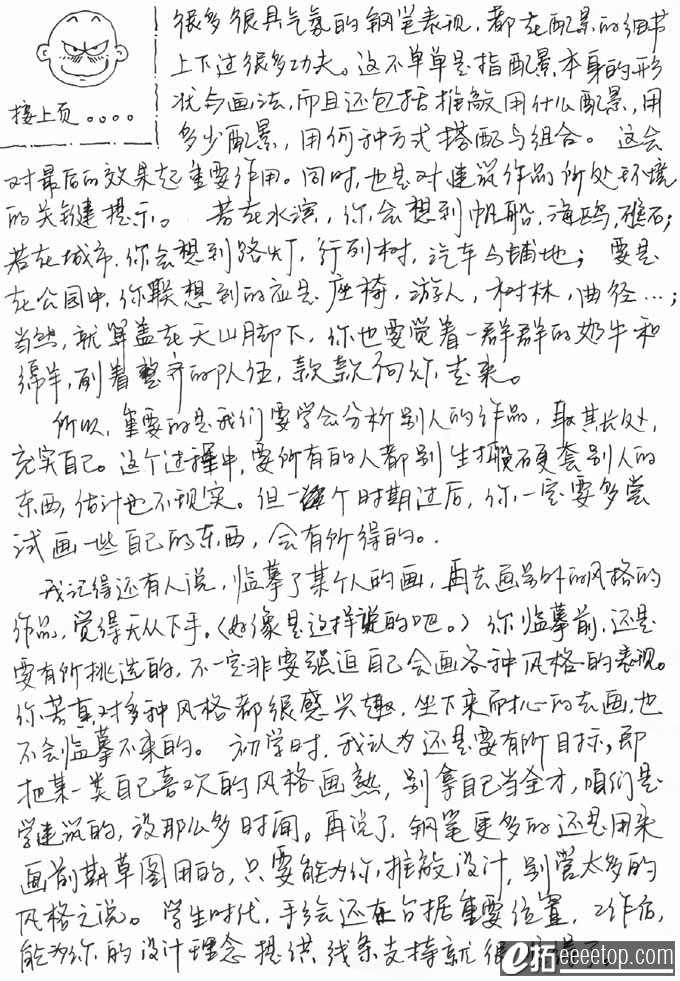 很多很具气氛的钢笔表现，都在配景的细节
上下过很多功夫。这不单单是指配景本身的形
状与画法，而且还包括推敲用什么配景，用
接上页。。。。
多少配景，用何种方式搭配与组合。这会
对最后的效果起重要作用。同时，也是对建筑作品所处环境
的关键提示。若在水滨，你会想到帆船，海鸥，礁石；
若在城市，你会想到路灯，行列树，汽车与铺地；要是
在公园中，你联想到的应是座椅，游人，树林，曲径…；
当然，就算盖在天山脚下，你也要觉着一群群的奶牛和
绵羊，列着整齐的队伍，款款向你走来。
所以，重要的是我们要学会分析别人的作品，取其长处，
充实自己。这个过程中，要所有的人都别生搬硬套别人的
东西，估计也不现实。但一个时期过后，你一定要多尝
试画一些自己的东西，会有所得的。
我记得还有人说，临摹了某个人的画，再去画另外的风格的
作品，觉得无从下手。（好像是这样说的吧。）你临摹前，还是
要有所挑选的，不一定非要强迫自己会画各种风格的表现。
你若真对多种风格都很感兴趣，坐下来耐心的去画，也
不会临摹不来的。初学时，我认为还是要有所目标，即
把某一类自己喜欢的风格画熟，别拿自己当全才，咱们是
学建筑的，没那么多时间。再说了，钢笔更多的还是用来
画前期草图用的，只要能为你推敲设计，别管太多的
风格之说。学生时代，手绘还在占据重要位置，工作后，
能为你的设计理念提供线条支持就很
e拓 eeeetop.com